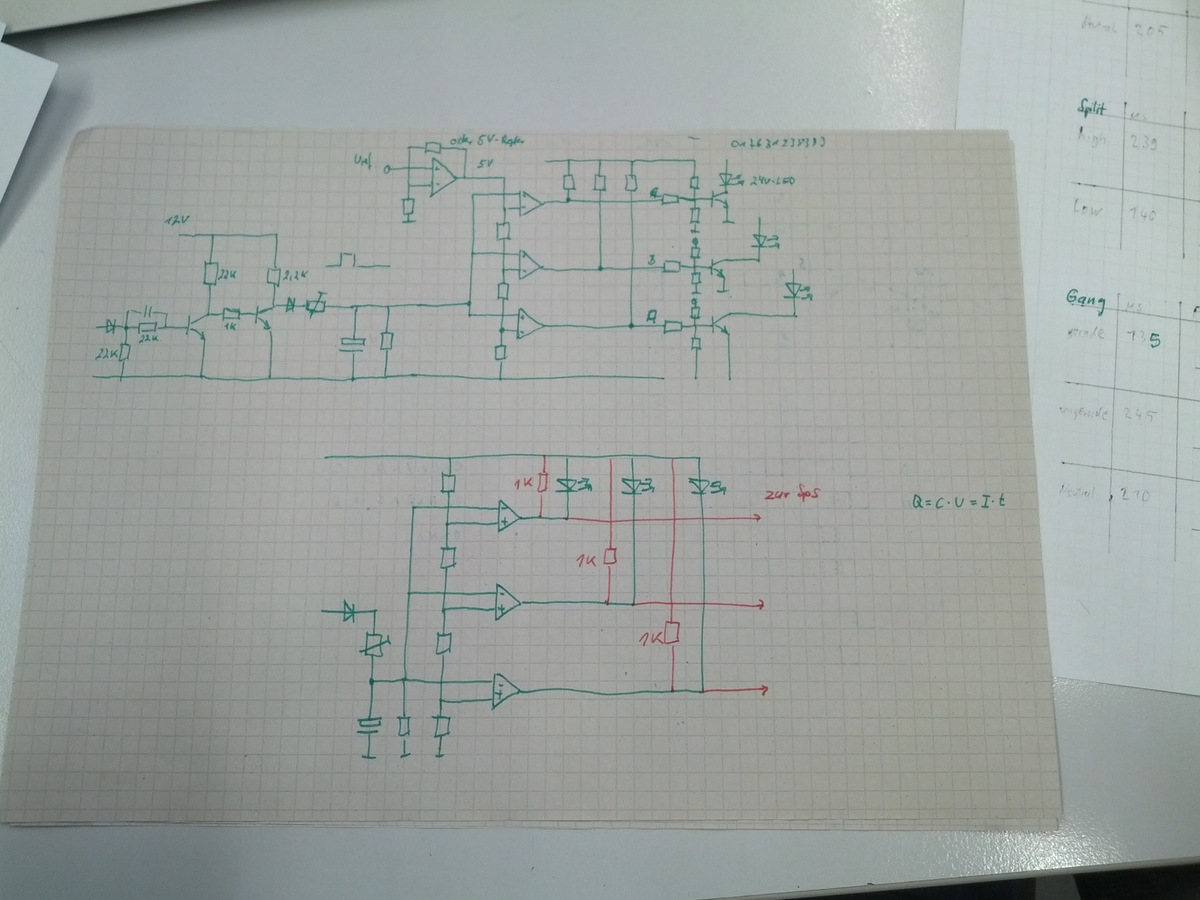 oder 5V-Regler
Uref
5V
24V-LED
12V
22K
2,2K
1K
22K
22K
1K
zur SPS
1K
1K
Q=C·U=I·t
Neutral 205
Split ms
High 239
Low 140
Gang ms
gerade 135
ungerade 245
Neutral 210